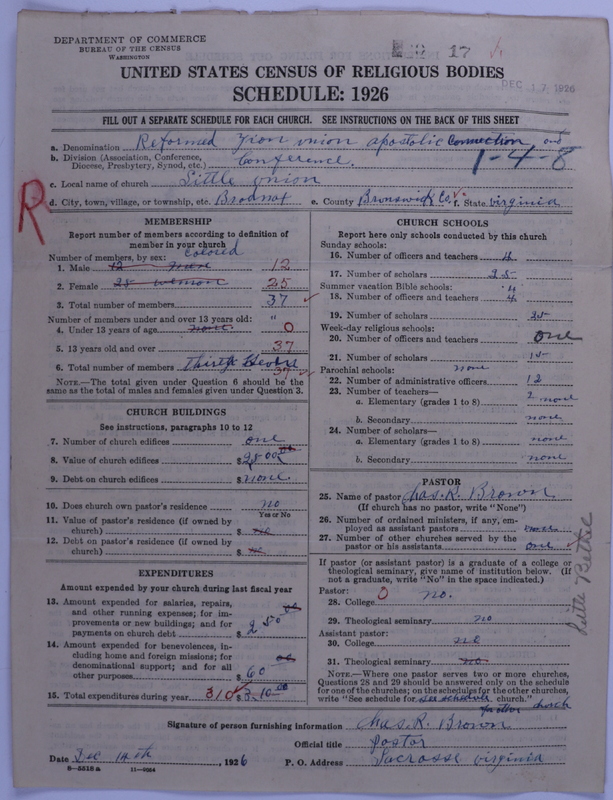 DEPARTMENT OF COMMERCE
BUREAU OF THE CENSUS
WASHINGTON
17
UNITED STATES CENSUS OF RELIGIOUS BODIES
DEC 17 1926
SCHEDULE: 1926
FILL OUT A SEPARATE SCHEDULE FOR EACH CHURCH. SEE INSTRUCTIONS ON THE BACK OF THIS SHEET
a. Denomination Reformed Zion union apostolic Connection and
b. Division (Association, Conference, Diocese, Presbytery, Synod, etc.) Conference. 1-4-8
c. Local name of church Little union
d. City, town, village, or township, etc. Brodnax e. County Brunswick Co f. State Virginia
R
MEMBERSHIP
Report number of members according to definition of
member in your church
Number of members, by sex: Colored
1. Male 12 12
2. Female 25 women 25
3. Total number of members 37
Number of members under and over 13 years old: "
4. Under 13 years of age none 0
5. 13 years old and over 37
6. Total number of members 37
NOTE.—The total given under Question 6 should be the
same as the total of males and females given under Question 3.
CHURCH BUILDINGS
See instructions, paragraphs 10 to 12
7. Number of church edifices one
8. Value of church edifices $2800
9. Debt on church edifices $none.
10. Does church own pastor's residence no
Yes or No
11. Value of pastor's residence (if owned by
church) $ no
12. Debt on pastor's residence (if owned by
church) $
EXPENDITURES
Amount expended by your church during last fiscal year
13. Amount expended for salaries, repairs,
and other running expenses; for im-
provements or new buildings; and for
payments on church debt $ 250
14. Amount expended for benevolences, in-
cluding home and foreign missions; for
denominational support; and for all
other purposes $ 60
15. Total expenditures during year 310 $ 310 00
CHURCH SCHOOLS
Report here only schools conducted by this church
Sunday schools:
16. Number of officers and teachers 4
17. Number of scholars 25
Summer vacation Bible schools: "
18. Number of officers and teachers 4
19. Number of scholars 25
Week-day religious schools:
20. Number of officers and teachers one
21. Number of scholars 15
Parochial schools: none
22. Number of administrative officers 12
23. Number of teachers—
a. Elementary (grades 1 to 8) 2 none
b. Secondary none
24. Number of scholars—
a. Elementary (grades 1 to 8) none
b. Secondary none
PASTOR
25. Name of pastor Chas. R. Brown
(If church has no pastor, write "None")
26. Number of ordained ministers, if any, em-
ployed as assistant pastors
27. Number of other churches served by the
pastor or his assistants one
If pastor (or assistant pastor) is a graduate of a college or
theological seminary, give name of institution below. (If
not a graduate, write "No" in the space indicated.)
Pastor: 0
28. College no.
29. Theological seminary no
Assistant pastor:
30. College no
31. Theological seminary no
NOTE.—Where one pastor serves two or more churches,
Questions 28 and 29 should be answered only on the schedule
for one of the churches; on the schedules for the other churches,
write "See schedule for see schedule church."
for other church
Little Bethel
Signature of person furnishing information Chas. R. Brown
Official title Pastor
Date Dec 14th, 1926 P. O. Address Lacrosse Virginia
8-5518 a 11-9054